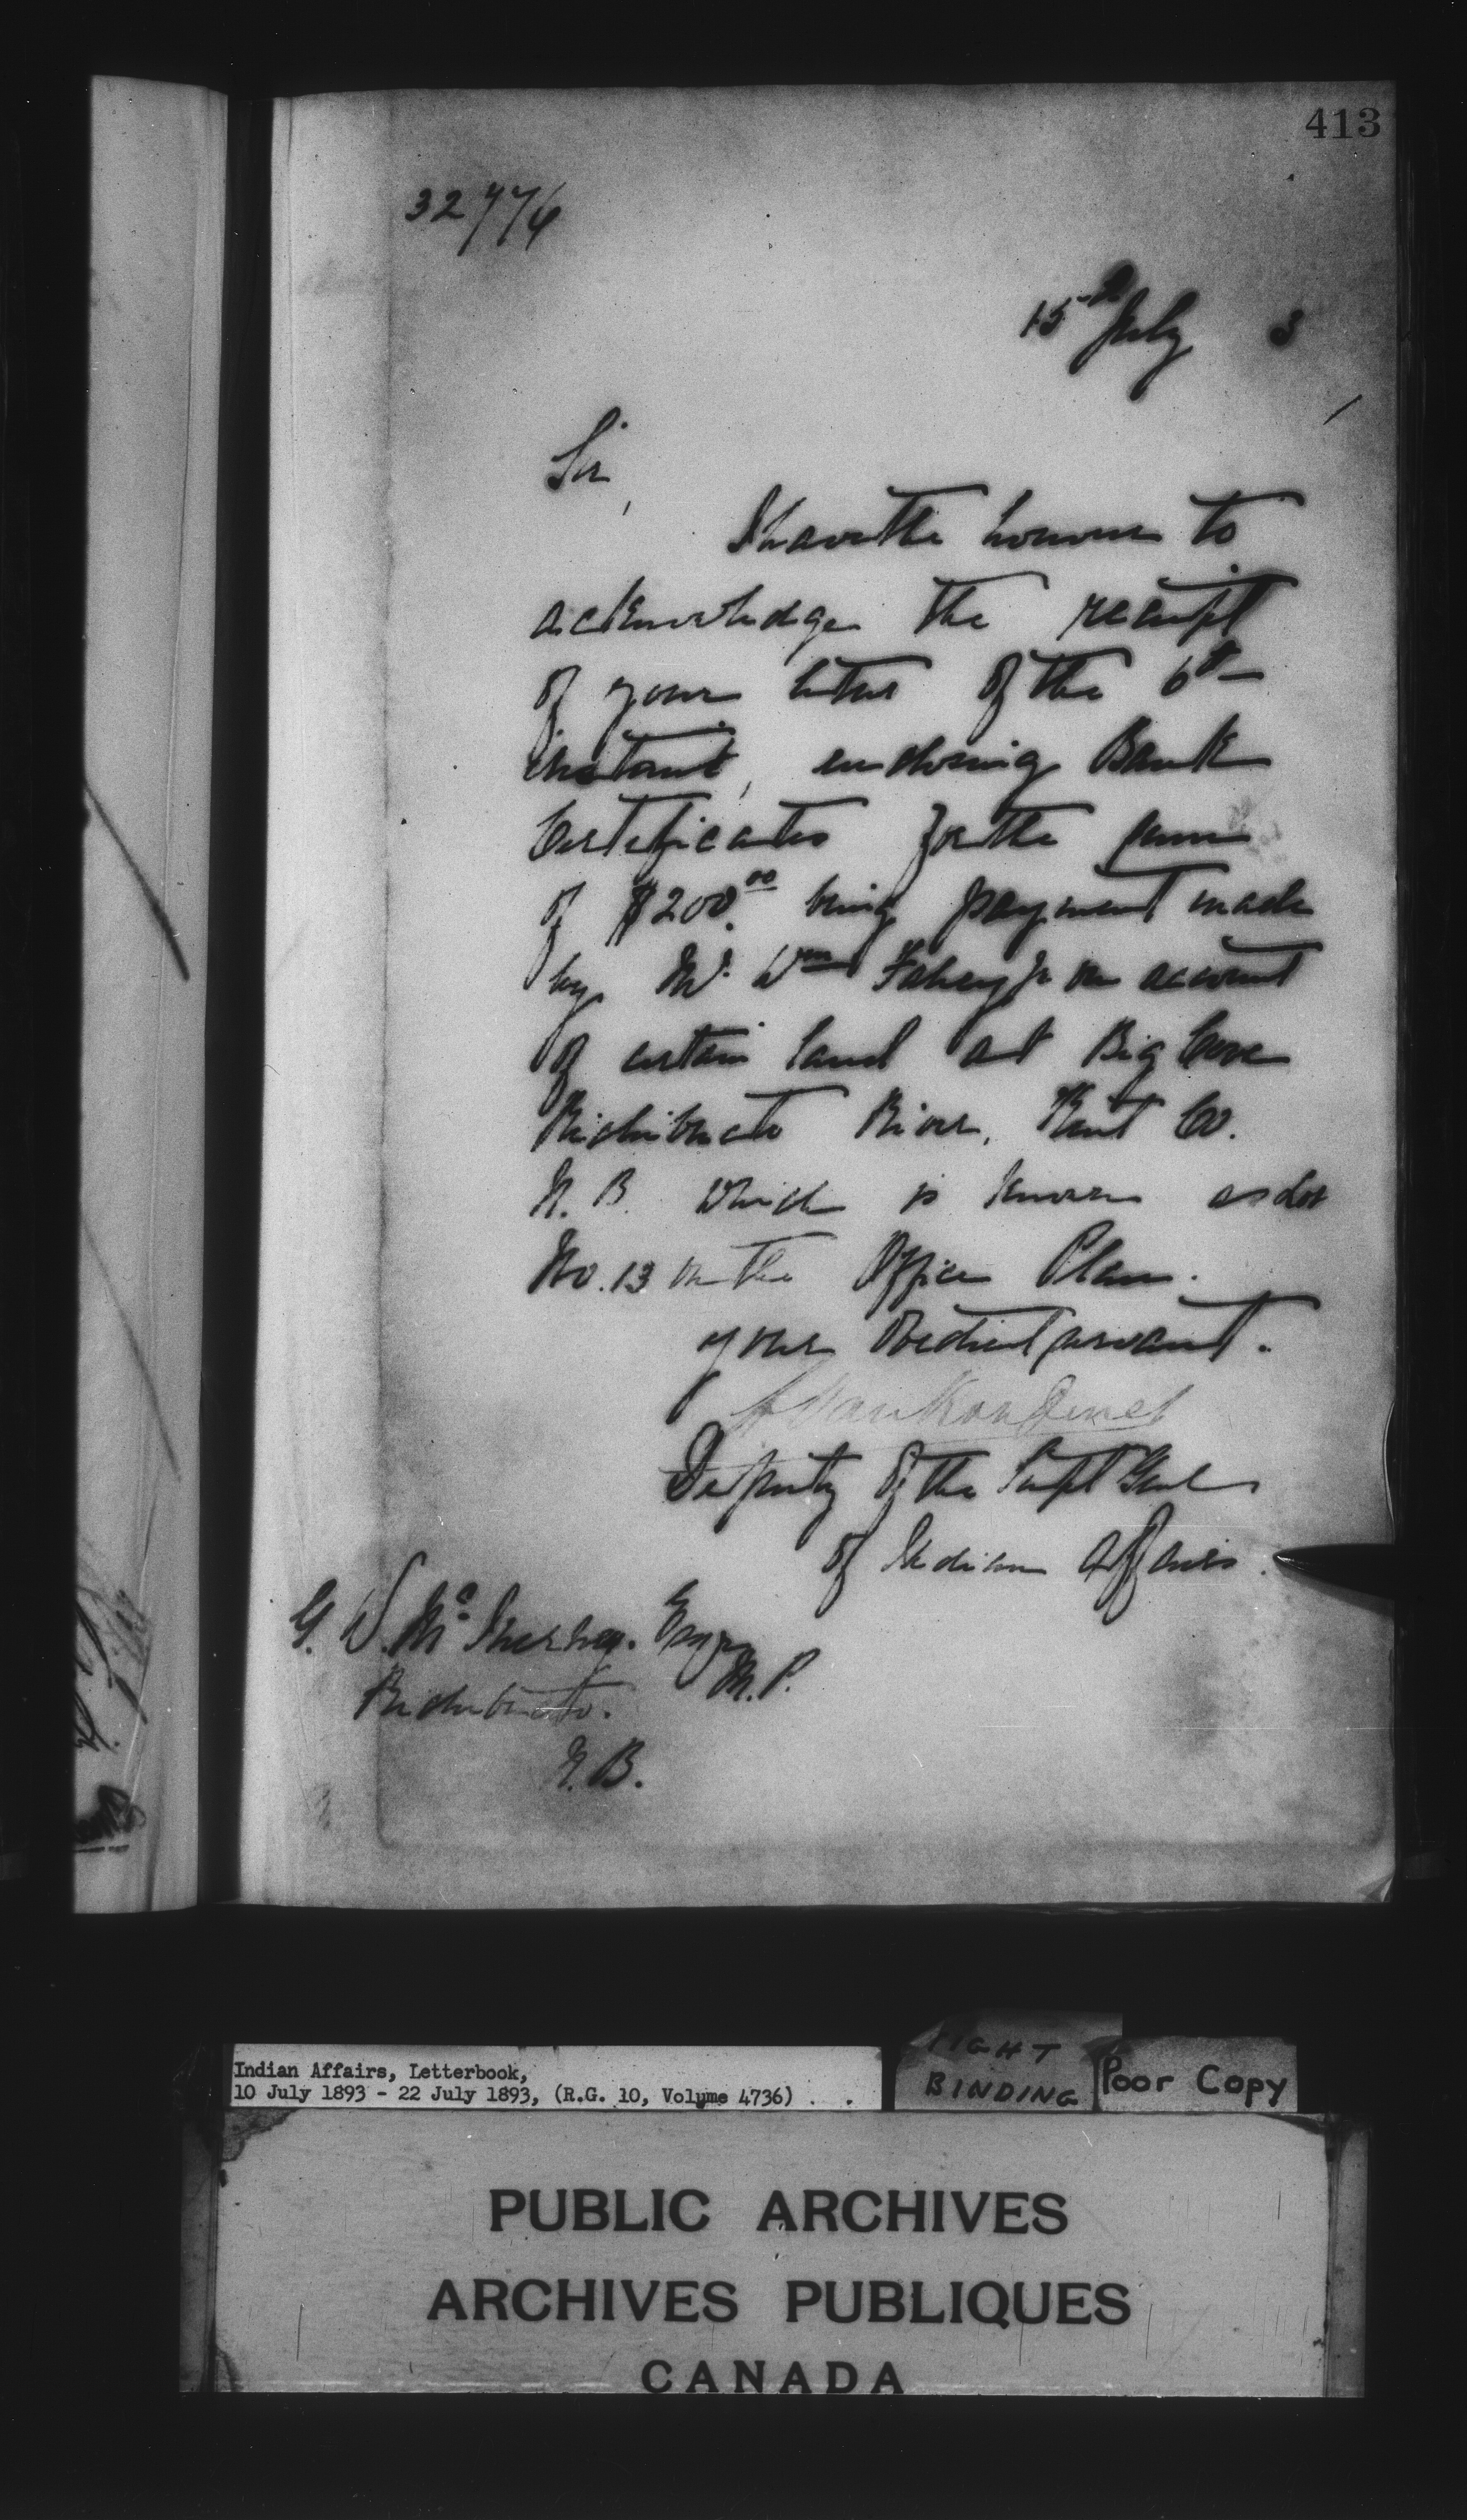 413
32776
15th July 3
Sir,
I have the honour to
acknowledge the receipt
of your letter of the 6th
instant, enclosing Bank
Certificates for the sum
of $200.00 being payment made
by Mr. Wm Fahey Jr on account
of certain land at Big Cove
Richibucto River, Kent Co.
N. B. which is known as Lot
No. 13 on the Office Plan.
your obedient servant.
L Vankoughnet
Deputy of the Supt Genl
of Indian Affairs.
G. W. Mc Inerney. Esqre
M. P.
Richibucto.
N. B.
Indian Affairs, Letterbook,
10 July 1893 - 22 July 1893, (R.G. 10, Volume 4736)
BINDING
Poor Copy
PUBLIC ARCHIVES
ARCHIVES PUBLIQUES
CANADA